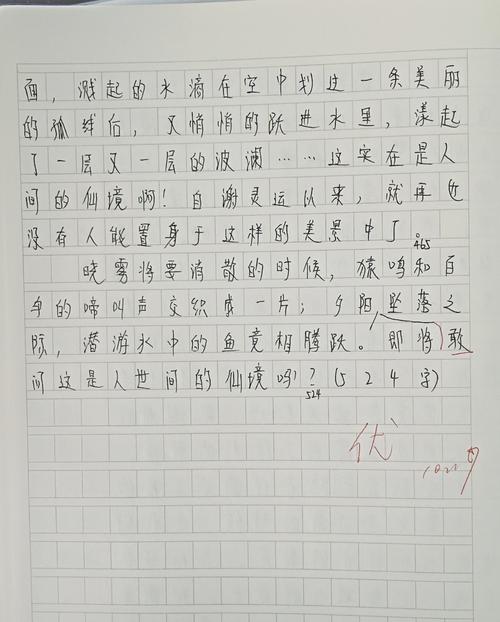 面，溅起的水滴在空中划过一条美丽
的弧线后，又悄悄的跃进水里，漾起
了一层又一层的波澜……这实在是人
间的仙境啊！自谢灵运以来，就再也
没有人能置身于这样的美景中了。
465
晓雾将要消散的时候，猿鸣和百
鸟的啼叫声交织成一片；夕阳坠落之
际，潜游水中的鱼竟相腾跃。即将敢
问这是人世间的仙境吗！？(524字)
524
优